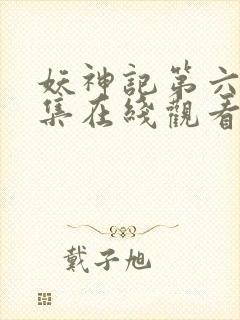 妖神記第六
集在綫觀看
戴子旭